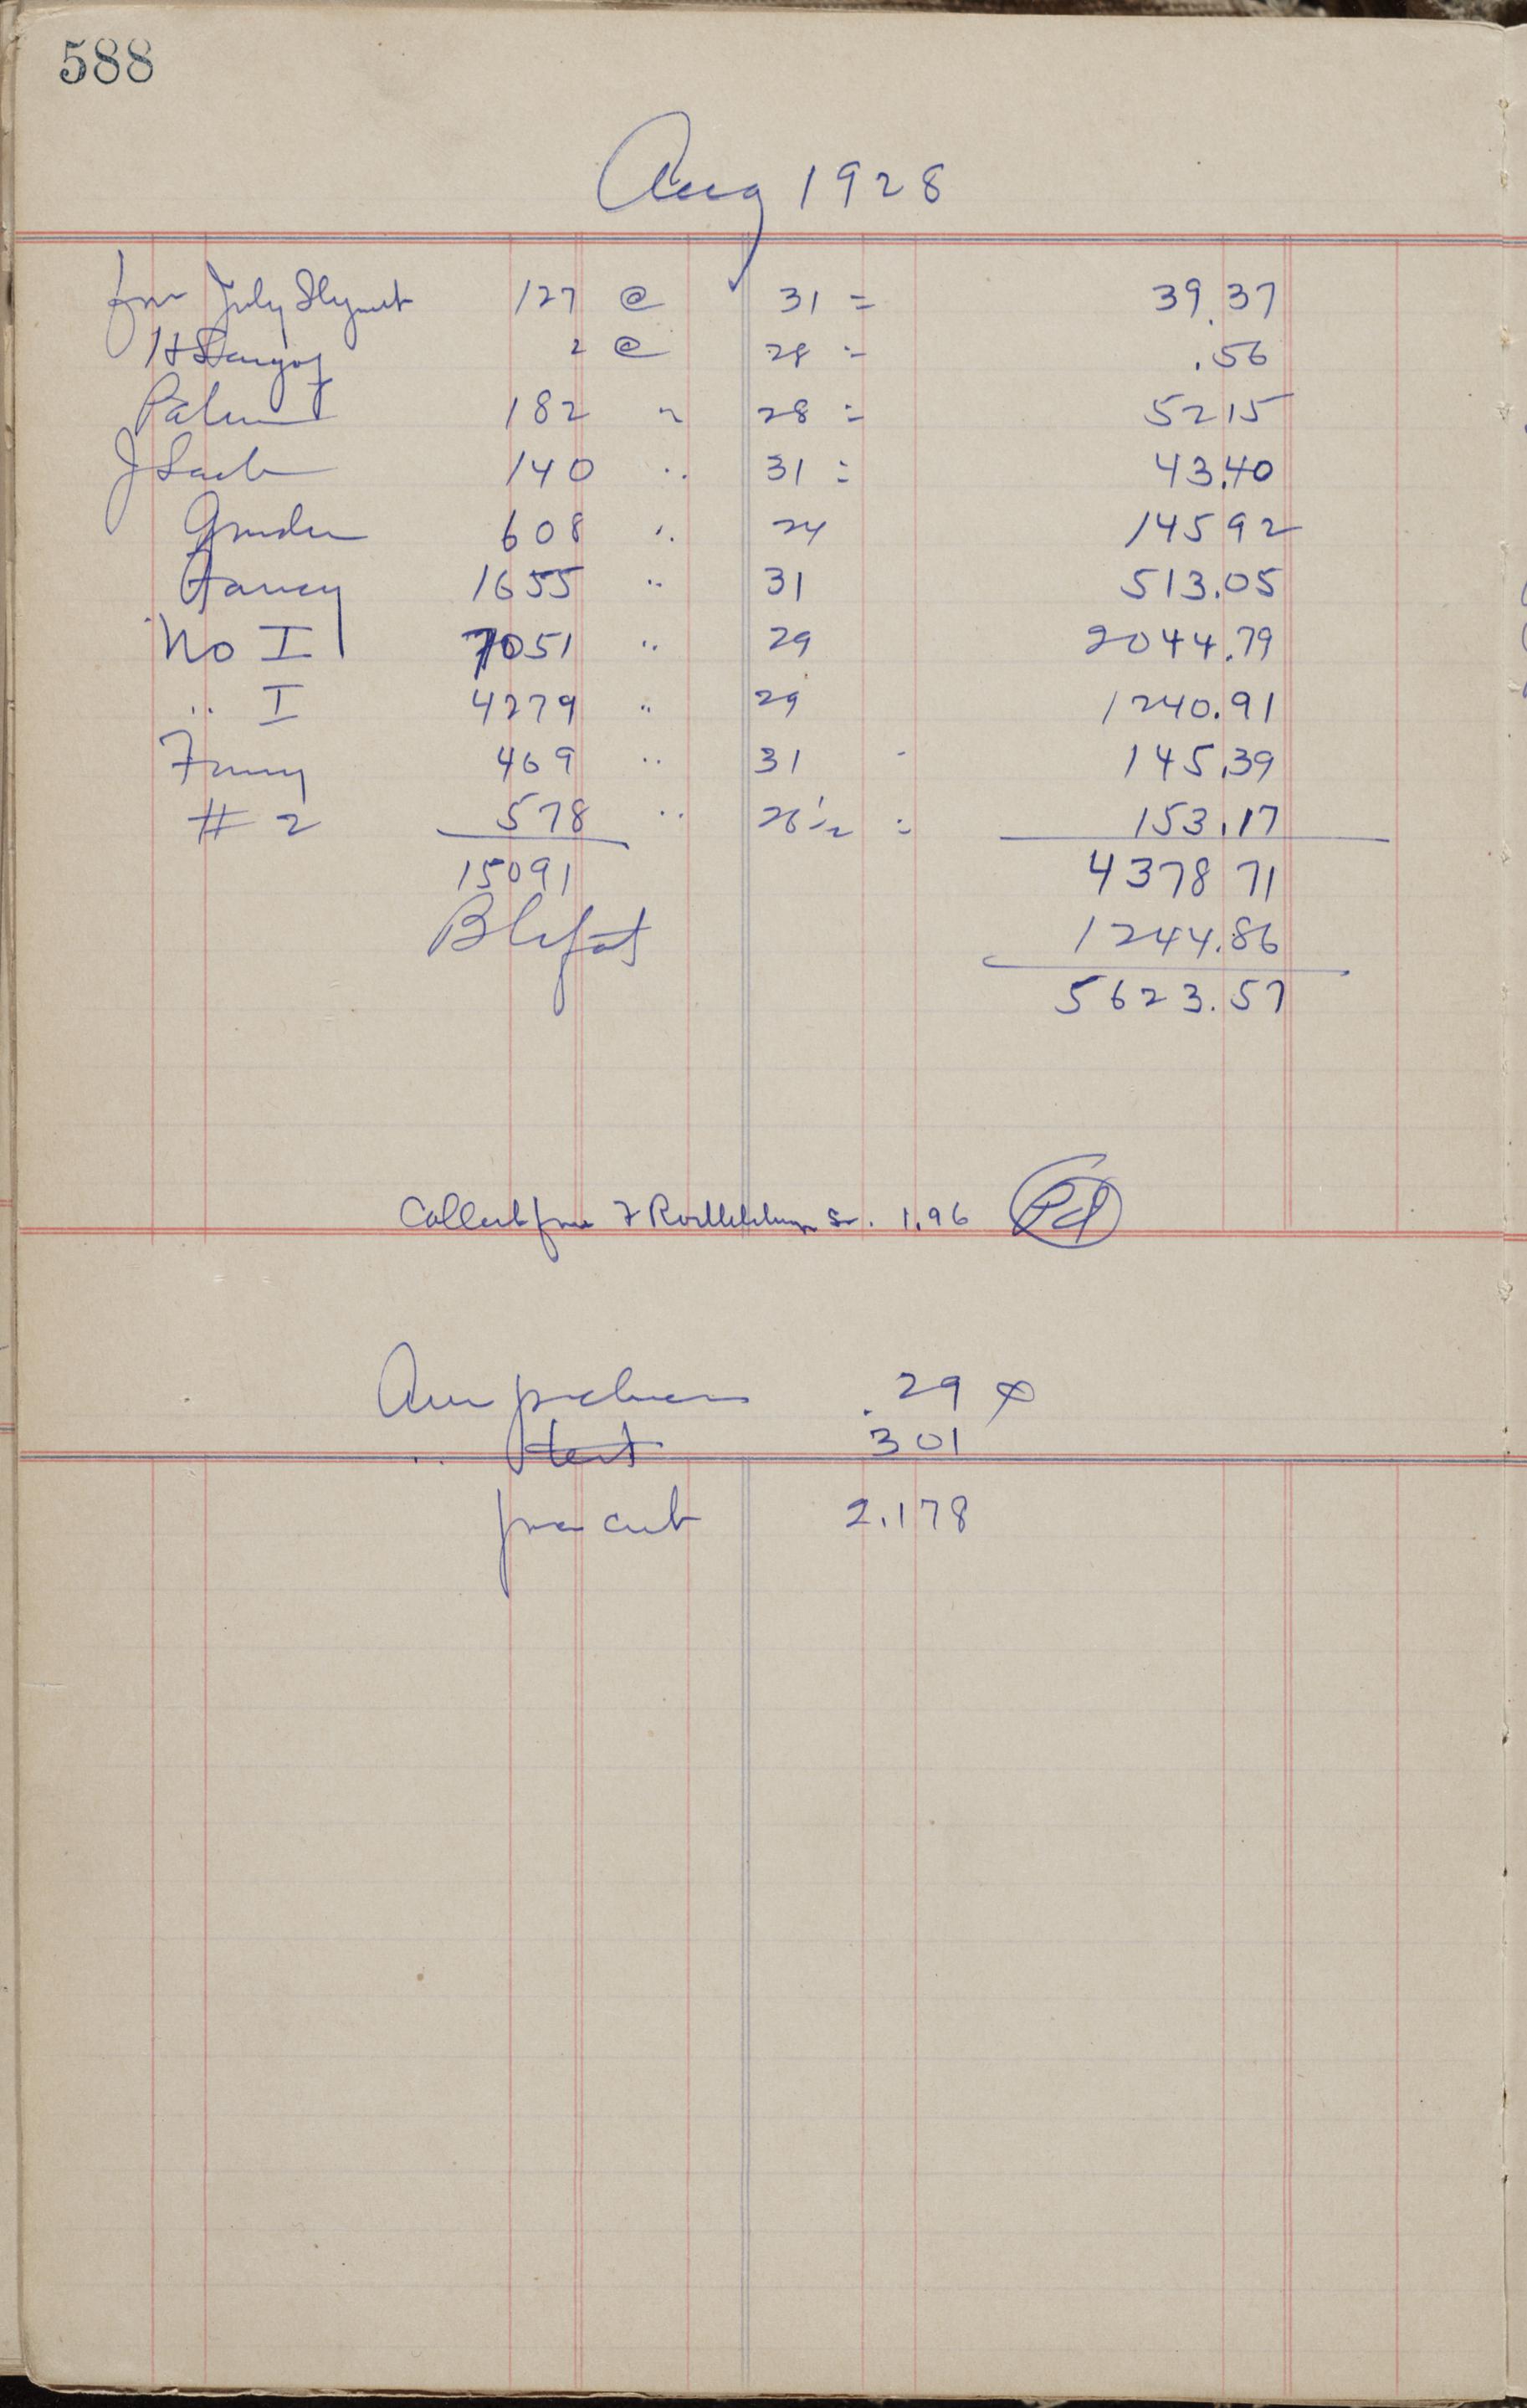 588
Aug 1928
from July Shipment 127 @ 31 = 39.37
2 @ 28 = .56
Patrons 182 " 28 = 52 15
J Sack 140 " 31 = 43.40
Grinder 608 " 24 145 92
Fancy 1655 " 31 513.05
No I 7051 " 29 2044.79
" I 4279 " 29 1240.91
Fancy 469 " 31 145.39
# 2 578 " 26 1/2 = 153.17
15091 4378 71
B 1244.86
5623.57
Collect from F Sr. 1.96 Pd
Ave .29 ¢
" test 301
per cwt 2.178